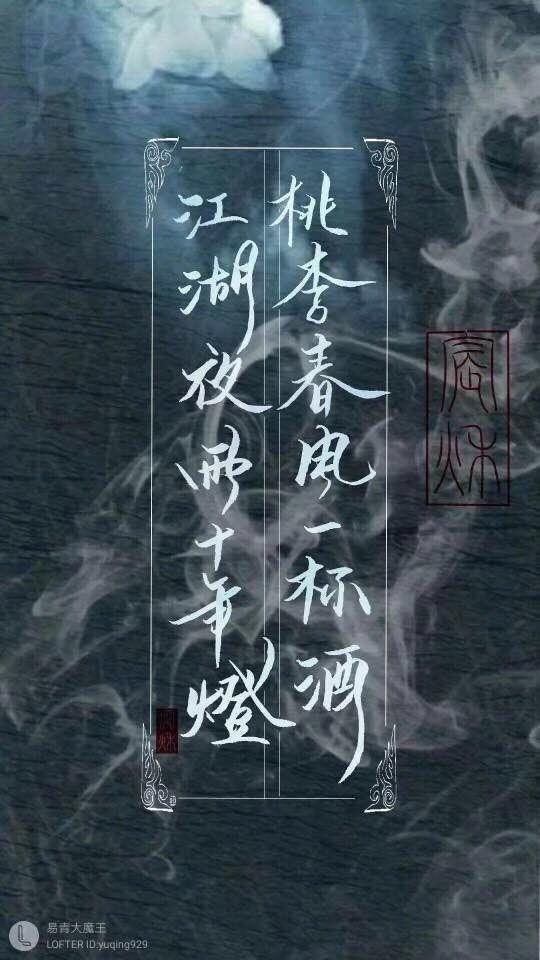 桃李春風一杯酒
江湖夜雨十年燈
易青大魔王
LOFTER ID:yuqing929